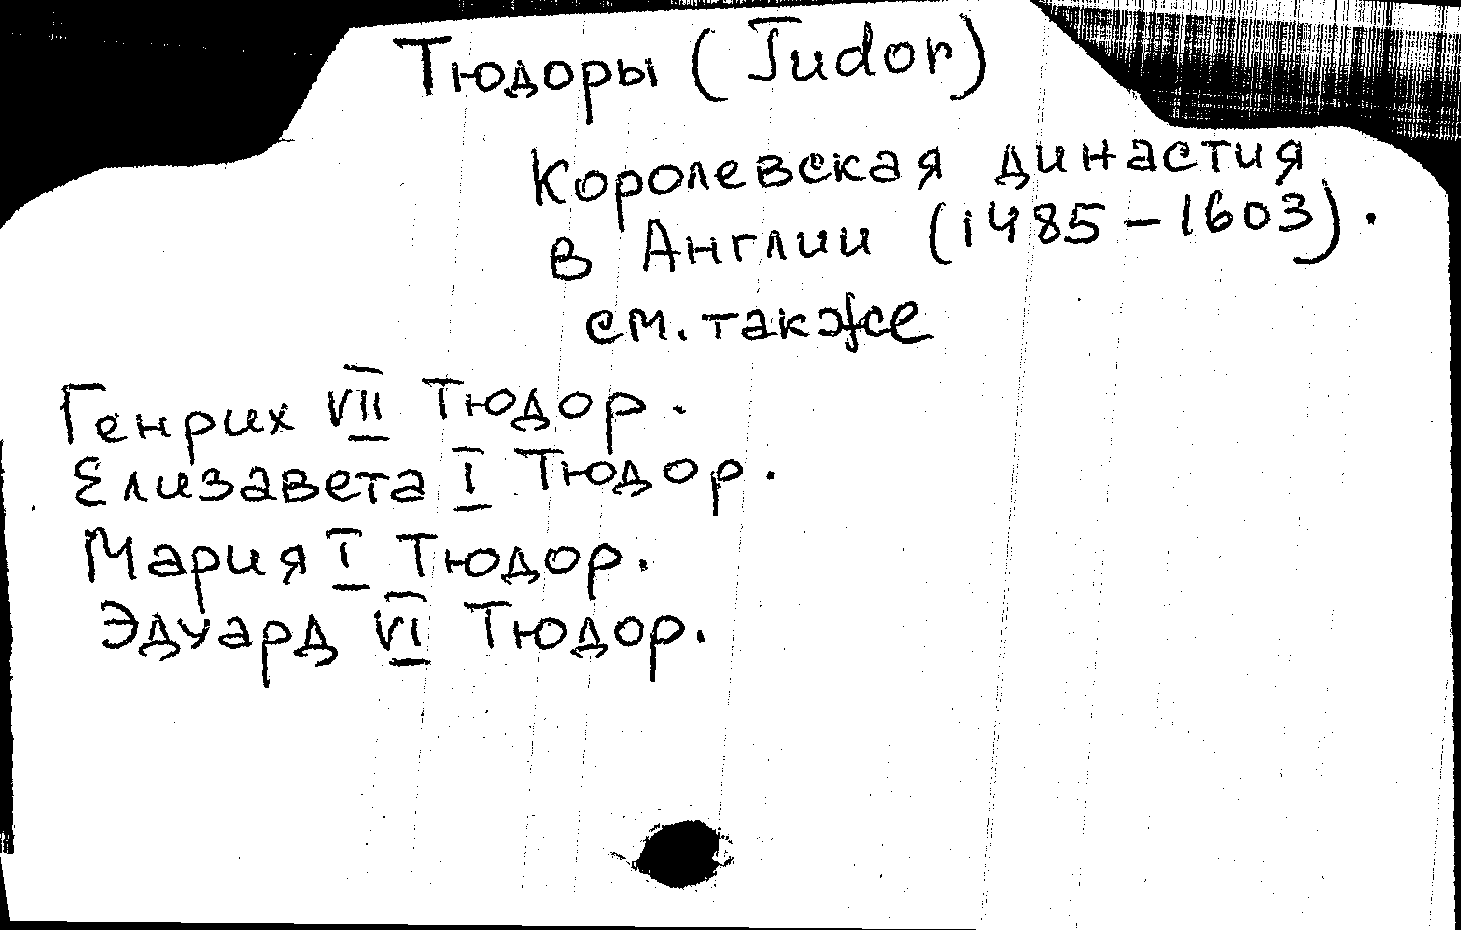 Тюдоры (Tudor)
Королевская династия
в Англии (1485-1603).
см. также
Генрих VII Тюдор.
Елизавета I Тюдор.
Мария I Тюдор.
Эдуард VI Тюдор.